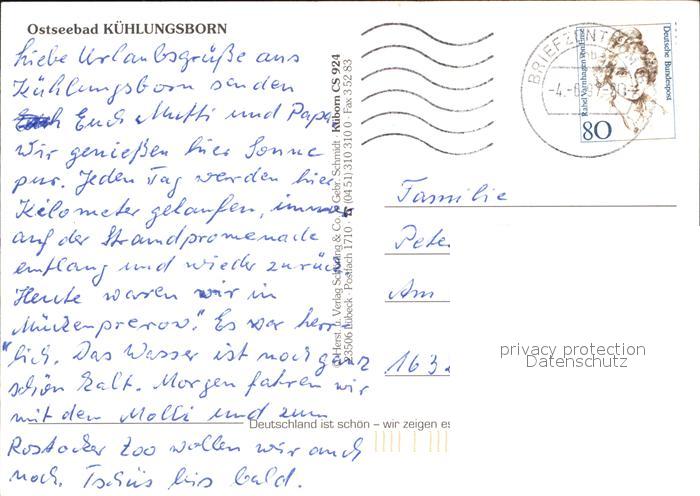 Ostseebad KÜHLUNGSBORN
Liebe Urlaubsgrüße aus
Kühlungsborn senden
Euch Mutti und Papa
Wir genießen hier Sonne
pur. Jeden Tag werden hier
Kilometer gelaufen, immer
auf der Strandpromenade
entlang und wieder zurück
Heute waren wir in
"Mückenprerow". Es war herr
lich. Das Wasser ist noch ganz
schön kalt. Morgen fahren wir
mit dem Molli und zum
Rostocker Zoo wollen wir auch
noch. Tschüs bis bald.
Herst. u. Verlag Schöning & Co. + Gebr. Schmidt Küborn CS 924
23506 Lübeck · Postfach 1710 · (04 51) 310 310 0 · Fax 3 52 83
Deutschland ist schön – wir zeigen es
BRIEFZENTR
Deutsche Bundespost
Rahel Varnhagen von Ense
80
Familie
Pete
Am
163
privacy protection
Datenschutz